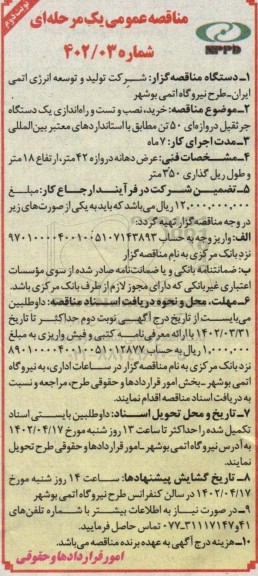 نوبت دوم
مناقصه عمومی یک مرحله‌ای
شماره ۴۰۲/۰۳
NPPD
۱- دستگاه مناقصه گزار: شرکت تولید و توسعه انرژی اتمی
ایران-طرح نیروگاه اتمی بوشهر
۲-موضوع مناقصه: خرید، نصب و تست و راه‌اندازی یک دستگاه
جرثقیل دروازه‌ای ۵۰ تن مطابق با استانداردهای معتبر بین‌المللی
۳-مدت اجرای کار: ۷ ماه
۴-مشخصات فنی: عرض دهانه دروازه ۴۲ متر، ارتفاع ۱۸ متر
و طول ریل گذاری ۳۵۰ متر
۵-تضمین شرکت در فرآیند ارجاع کار: مبلغ
۱۲,۰۰۰,۰۰۰,۰۰۰ ریال می‌باشد که باید به یکی از صورت‌های زیر
در وجه مناقصه گزار تهیه گردد:
الف: واریز وجه به حساب ۹۷۰۱۰۰۰۰۴۰۰۱۰۰۵۱۰۷۱۴۳۸۹۳
نزد بانک مرکزی به نام مناقصه گزار
ب: ضمانتنامه بانکی و یا ضمانت‌نامه صادر شده از سوی مؤسسات
اعتباری غیربانکی که دارای مجوز لازم از طرف بانک مرکزی باشد.
۶-مهلت، محل و نحوه دریافت اسناد مناقصه: داوطلبین
می‌بایست از تاریخ درج آگهی نوبت دوم حداکثر تا تاریخ
۱۴۰۲/۰۳/۳۱ با ارائه معرفی‌نامه کتبی و فیش واریزی به مبلغ
۱,۰۰۰,۰۰۰ ریال به حساب ۸۹۰۱۰۰۰۰۴۰۰۱۱۰۰۵۱۰۱۲۸۷۷
نزد بانک مرکزی به نام مناقصه گزار در ساعات اداری، به نیروگاه
اتمی بوشهر -بخش امور قراردادها و حقوقی طرح، مراجعه و نسبت
به دریافت اسناد مناقصه اقدام نمایند.
۷-تاریخ و محل تحویل اسناد: داوطلبین بایستی اسناد
تکمیل شده را حداکثر تا ساعت ۱۳ روز شنبه مورخ ۱۴۰۲/۰۴/۱۷
به آدرس نیروگاه اتمی بوشهر -امور قراردادها و حقوقی طرح تحویل
نمایند.
۸-تاریخ گشایش پیشنهادها: ساعت ۱۴ روز شنبه مورخ
۱۴۰۲/۰۴/۱۷ در سالن کنفرانس طرح نیروگاه اتمی بوشهر
۹-در صورت نیاز به اطلاعات بیشتر با شماره تلفن‌های
۴۱ و ۰۷۷-۳۱۱۱۷۱۴۷ تماس حاصل فرمایید.
۱۰-هزینه درج آگهی به عهده برنده مناقصه می‌باشد.
امور قراردادها و حقوقی